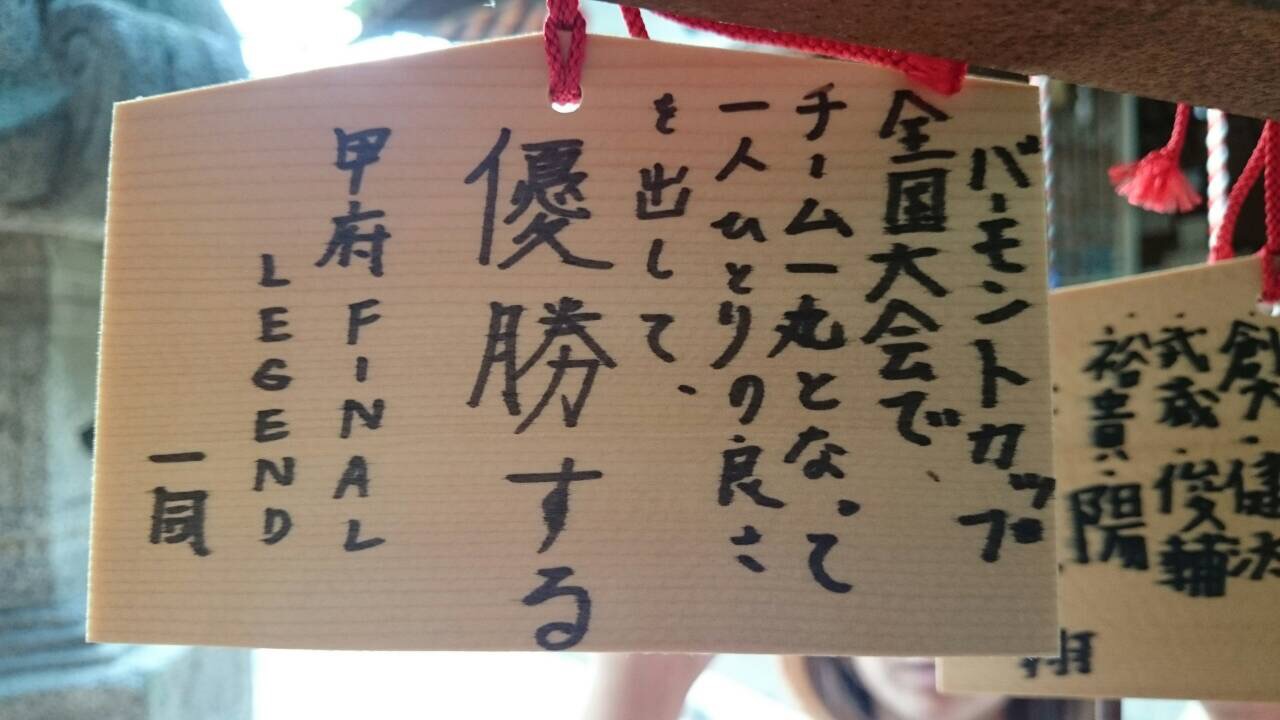 バーモントカップ
全国大会で、
チーム一丸となって
一人ひとりの良さ
を出して、
優勝する
甲府FINAL
LEGEND
一同
健
武蔵・俊輔
裕貴・陽
翔